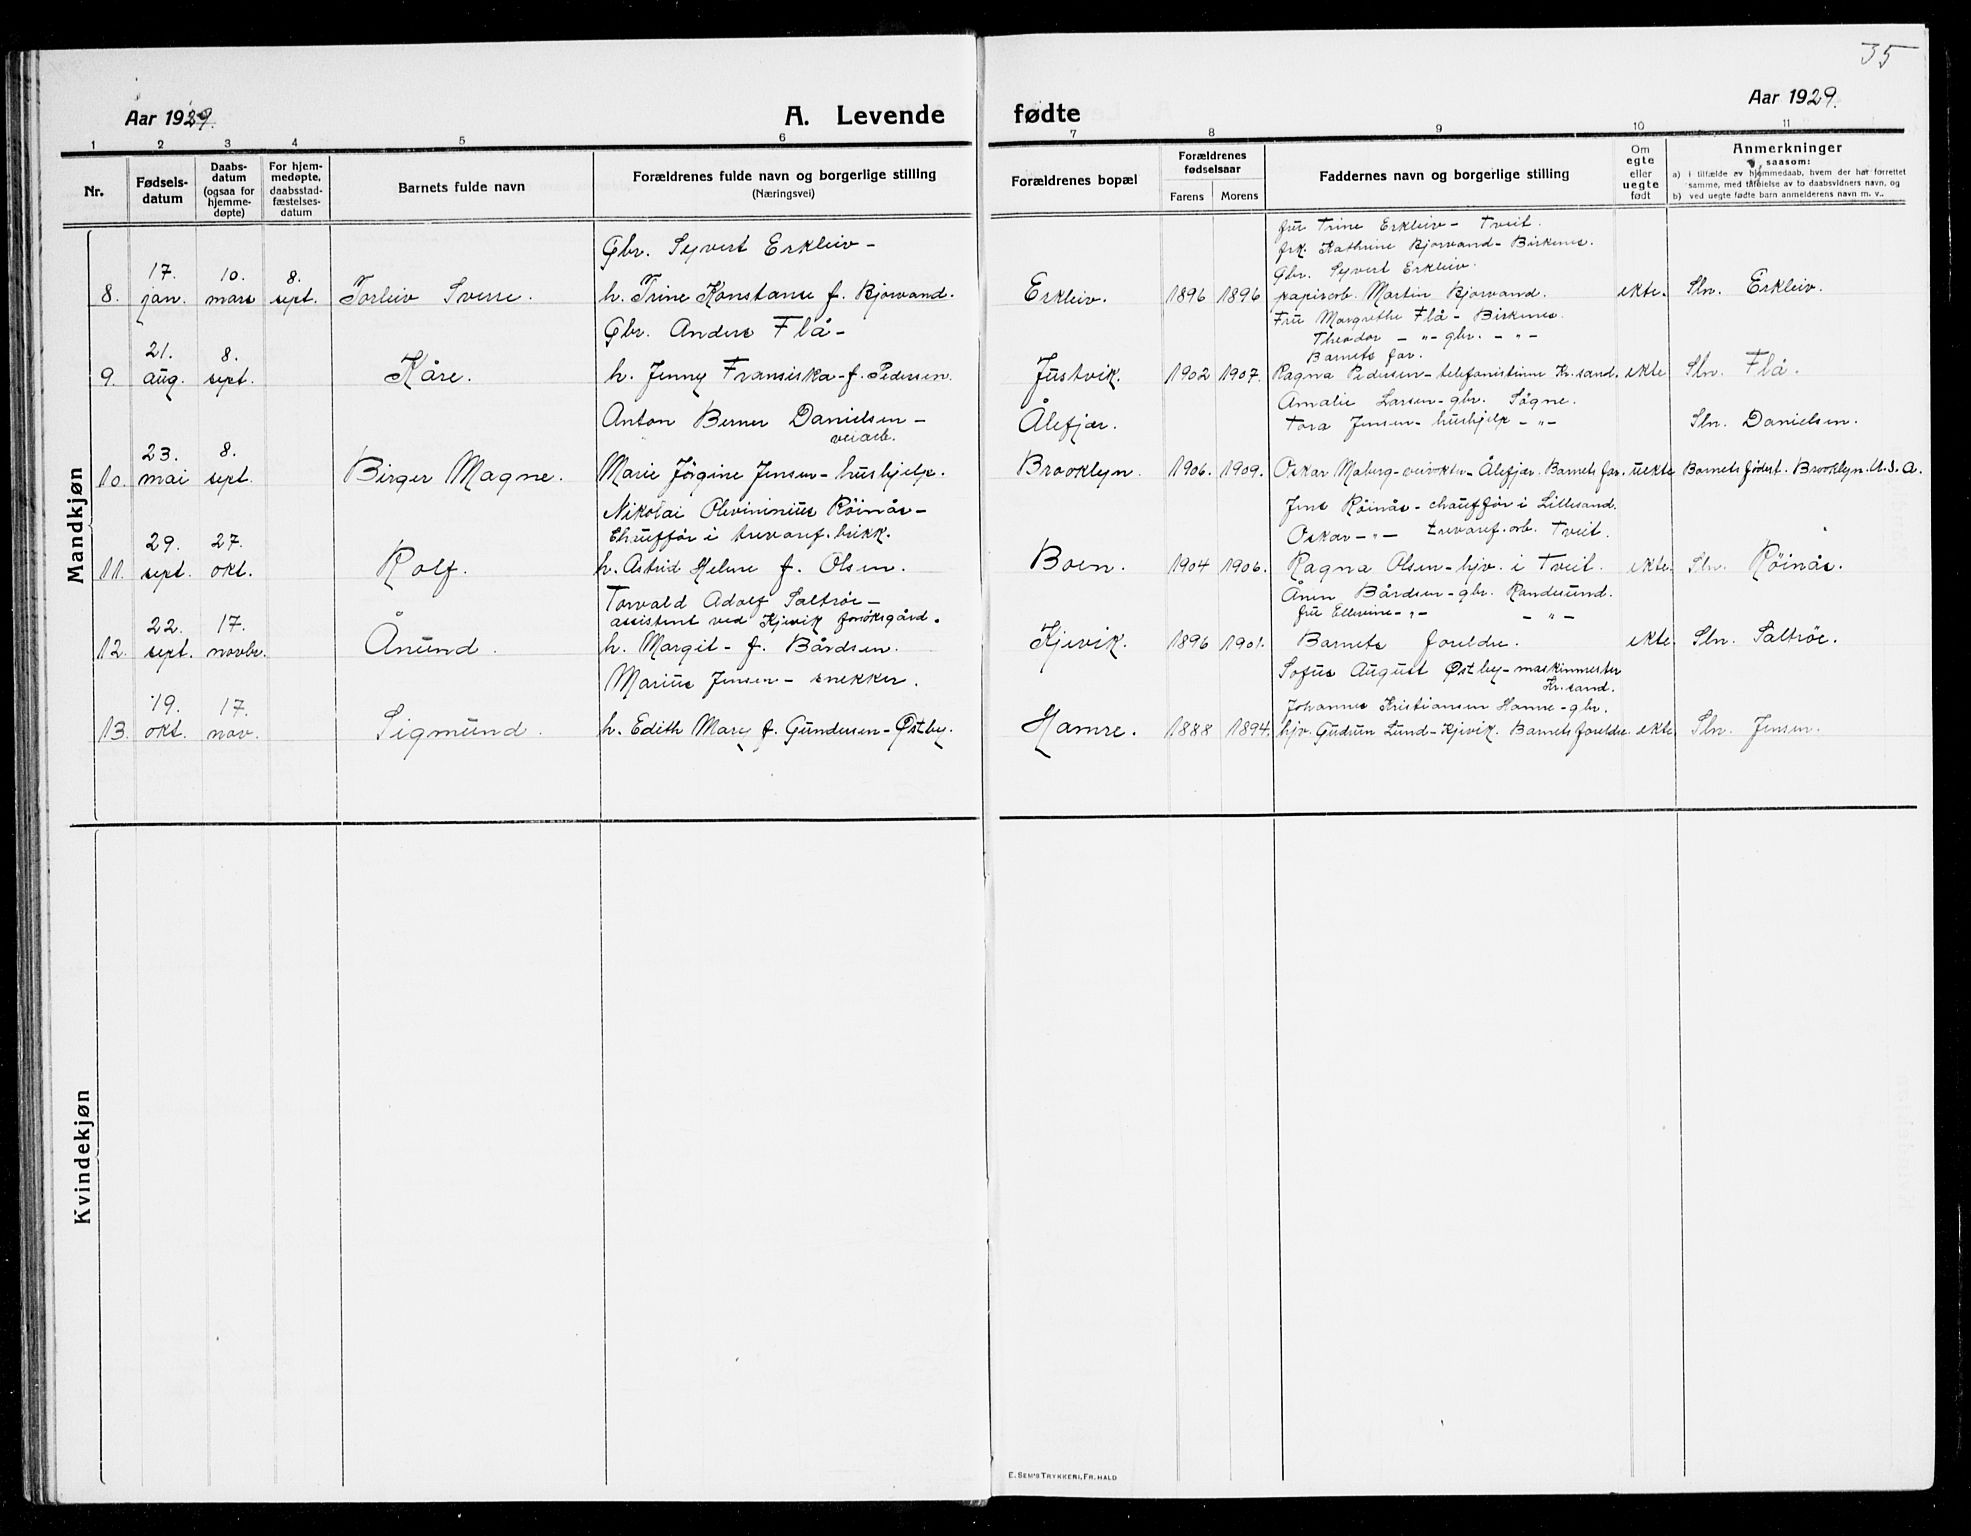 35
Aar 1929.
A. Levende
fødte
Aar 1929.
1 2 3 4 5 6 7 8 9 10 11
Nr.
Fødsels-
datum
Daabs-
datum
(ogsaa for
hjemme-
døpte)
For hjem-
medøpte,
daabsstad-
fæstelses-
datum
Barnets fulde navn
Forældrenes fulde navn og borgerlige stilling
(Næringsvei)
Forældrenes bopæl
Forældrenes
fødselsaar
Farens
Morens
Faddernes navn og borgerlige stilling
Om
egte
eller
uegte
født
Anmerkninger
saasom:
a) i tilfælde av hjemmedaab, hvem der har forrettet
samme, med tilføielse av to daabsvidners navn, og
b) ved uegte fødte barn anmelderens navn m. v..
Mandkjøn
8.
17.
jan.
10.
mars
8.
sept.
Torleiv Sverre.
Gbr. Syvert Erkleiv -
h. Trine Konstanse f. Bjorvand.
Erkleiv.
1896
1896
fru Trine Erkleiv - Tveit.
frk. Kathrine Bjorvand - Birkenes.
Gbr. Syvert Erkleiv.
papirarb. Martin Bjorvand.
ekte.
Sln. Erkleiv.
9.
21.
aug.
8.
sept.
Kåre.
Gbr. Anders Flå -
h. Jenny Fransiska - f. Pedersen.
Justvik.
1902
1907.
Fru Margrethe Flå - Birkenes.
Theodor - " - gbr. - " -
Barnets far.
Ragna Pedersen - telefonistinne Kr.sand.
ekte
Sln. Flå.
10.
23.
mai
8.
sept.
Birger Magne.
Anton Berner Danielsen -
veiarb.
Marie Jörgine Jensen - hushjelp.
Ålefjær.
Brooklyn.
1906.
1909.
Amalie Larsen - gbr. Søgne.
Tora Jensen - hushjelp - " -
Oskar Moberg - Ålefjær. Barnets far.
uekte
Sln. Danielsen.
Barnets fødest. Brooklyn. U.S.A.
11.
29.
sept.
27.
okt.
Rolf.
Nikolai Olevininius Röinås -
Chauffør i trevaref.brikk.
h. Astrid Helene f. Olsen.
Boen.
1904
1906.
Jens Röinås - chauffør i Lillesand.
Oskar - " - trevaref. arb. Tveit.
Ragna Olsen - hjv. i Tveit.
ekte.
Sln. Röinås.
12.
22.
sept.
17.
novbr.
Ånund.
Torvald Adolf Saltröe -
assistent ved Kjevik forsöksgård.
h. Margit - f. Bårdsen.
Kjevik.
1896
1901.
Ånen Bårdsen - gbr. Randesund.
fru Ellevine - " - - " -
Barnets foreldre.
ekte.
Sln. Saltröe.
13.
19.
okt.
17.
nov.
Sigmund.
Marius Jensen - snekker.
h. Edith Mary f. Gundersen - Østby.
Hamre.
1888
1894.
Sofus August Østby - maskinmester
Kr.sand.
Johannes Kristiansen Hamre - gbr.
hjv. Gudrun Lund - Kjevik. Barnets foreldre.
ekte
Sln. Jensen.
Kvindekjøn
E. SEM'S TRYKKERI, FR.HALD